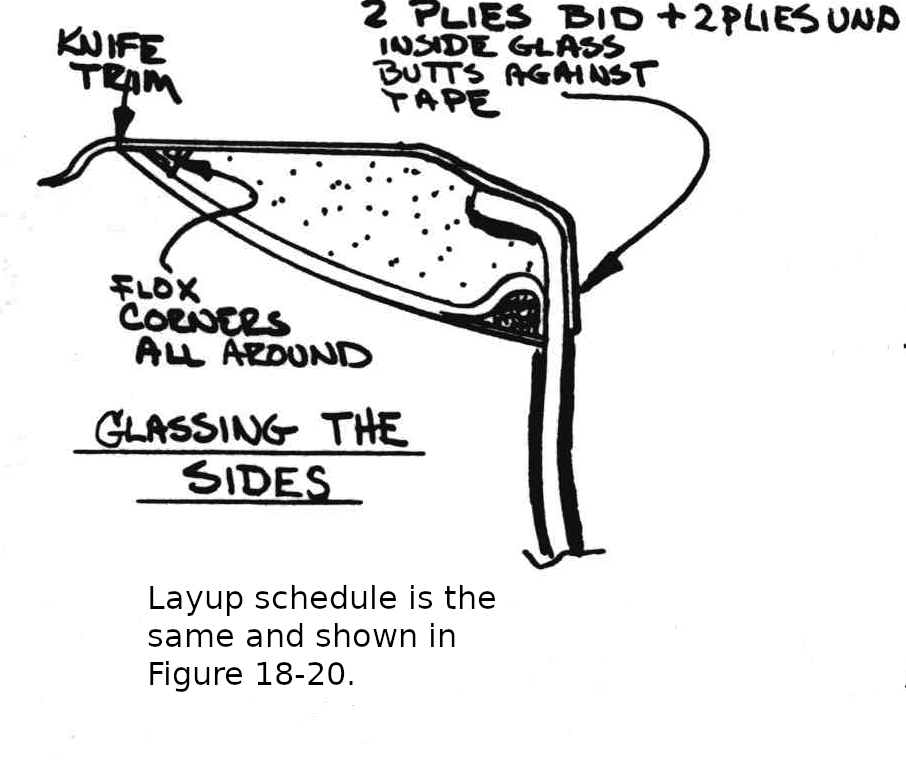 2 PLIES BID + 2 PLIES UND
INSIDE GLASS
BUTTS AGAINST
TAPE
KNIFE
TRIM
FLOX
CORNERS
ALL AROUND
GLASSING THE
SIDES
Layup schedule is the
same and shown in
Figure 18-20.